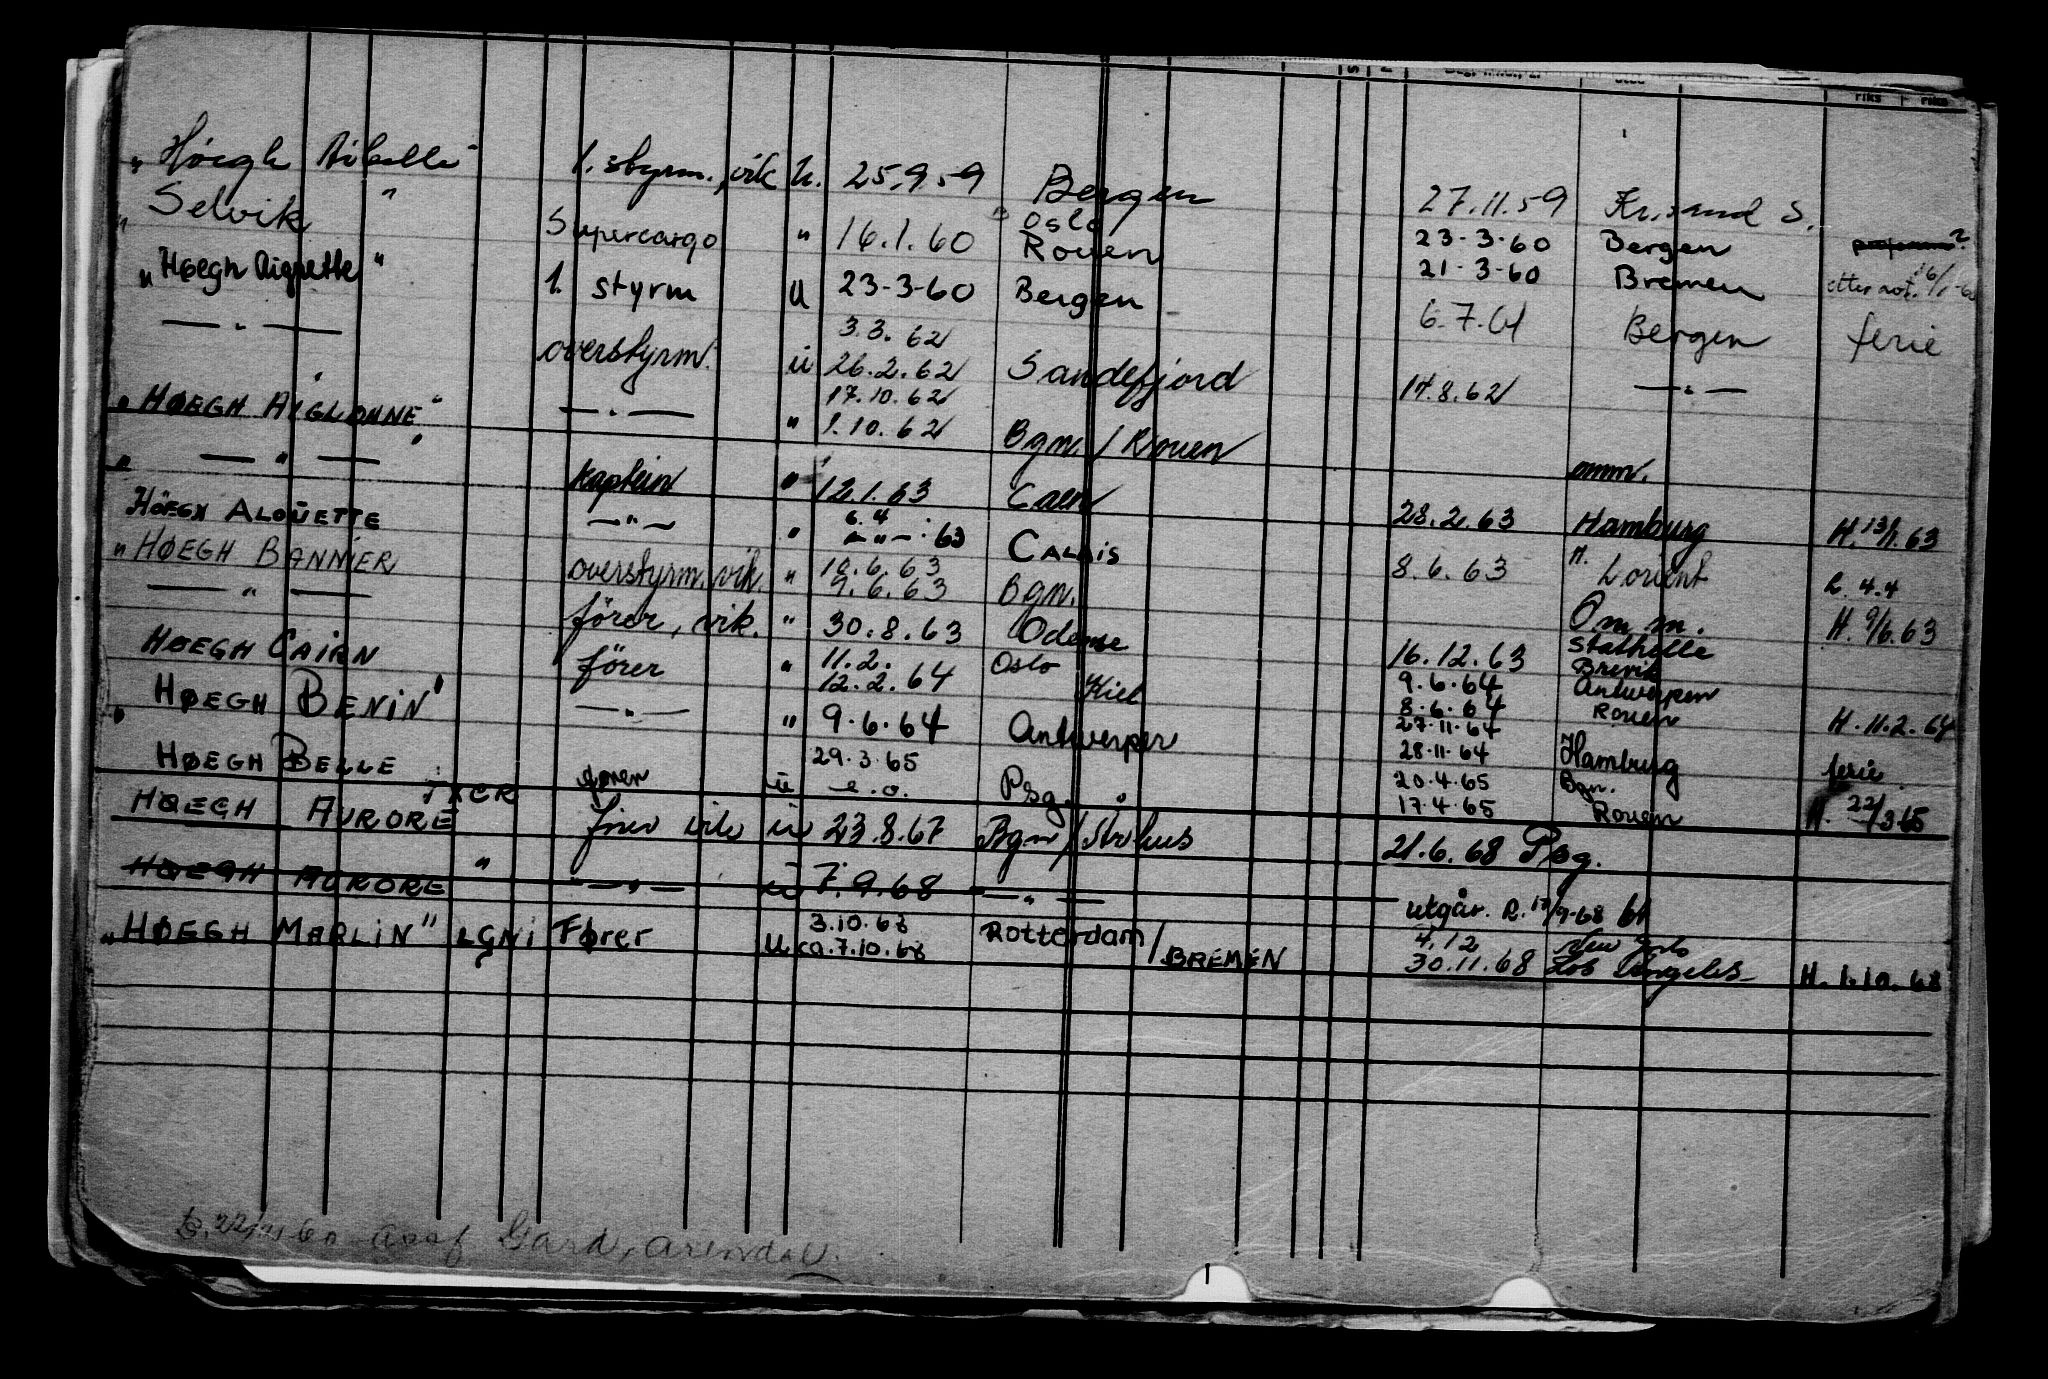 „Høegh 1. styrm., vik u. 25.9.59 Bergen 27.11.59 Kr.sand S.
„Selvik" Supercargo " 16.1.60 Oslo Rouen 23-3-60 Bergen
21-3-60 Bremen etter not. 16/1-60
„Høegh Aigrette" 1. styrm u 23-3-60 Bergen 6.7.61 Bergen ferie
— " — overstyrm. u 3.3.62 26.2.62 Sandefjord 17.8.62 — " —
„HØEGH AIGLONNE" — " — " 17.10.62 1.10.62 Bgn. / Rouen omm.
" — " — kaptein " 12.1.63 Caen 28.2.63 Hamburg H. 13/1.63
HÖEGH ALOUETTE — " — " 6.4 — " — .63 CALAIS 8.6.63 Lorient R. 4.4
„HØEGH BANNIER overstyrm. vik. " 10.6.63 9.6.63 Bgn. Om m. H. 9/6.63
— " — förer, vik. " 30.8.63 Odense 16.12.63 Stathelle Brevik
HØEGH CAIRN förer " 11.2. 12.2.64 Oslo Kiel 9.6.64 Antwerpen
8.6.64 Rouen H. 11.2.64
„HØEGH BENIN" — " — " 9.6.64 Antwerpen 27.11.64
28.11.64 Hamburg ferie
HØEGH BELLE fører u 29.3.65 e.o. Psg. 20.4.65 Bgn.
17.4.65 Rouen H. 22/3 65
HØEGH AURORE JXCR fører vik u 23.8.67 Bgn / Århus 21.6.68 Psg.
HØEGH AURORE " — " — u 7.9.68 — " — utgår. R. 17/9-68
„HØEGH MARLIN" LGNI Fører u 3.10.68 ca. 7.10.68 Rotterdam / BREMEN 4.12
30.11.68 Los Angeles H. 1.10.68
Gard, Arendal.